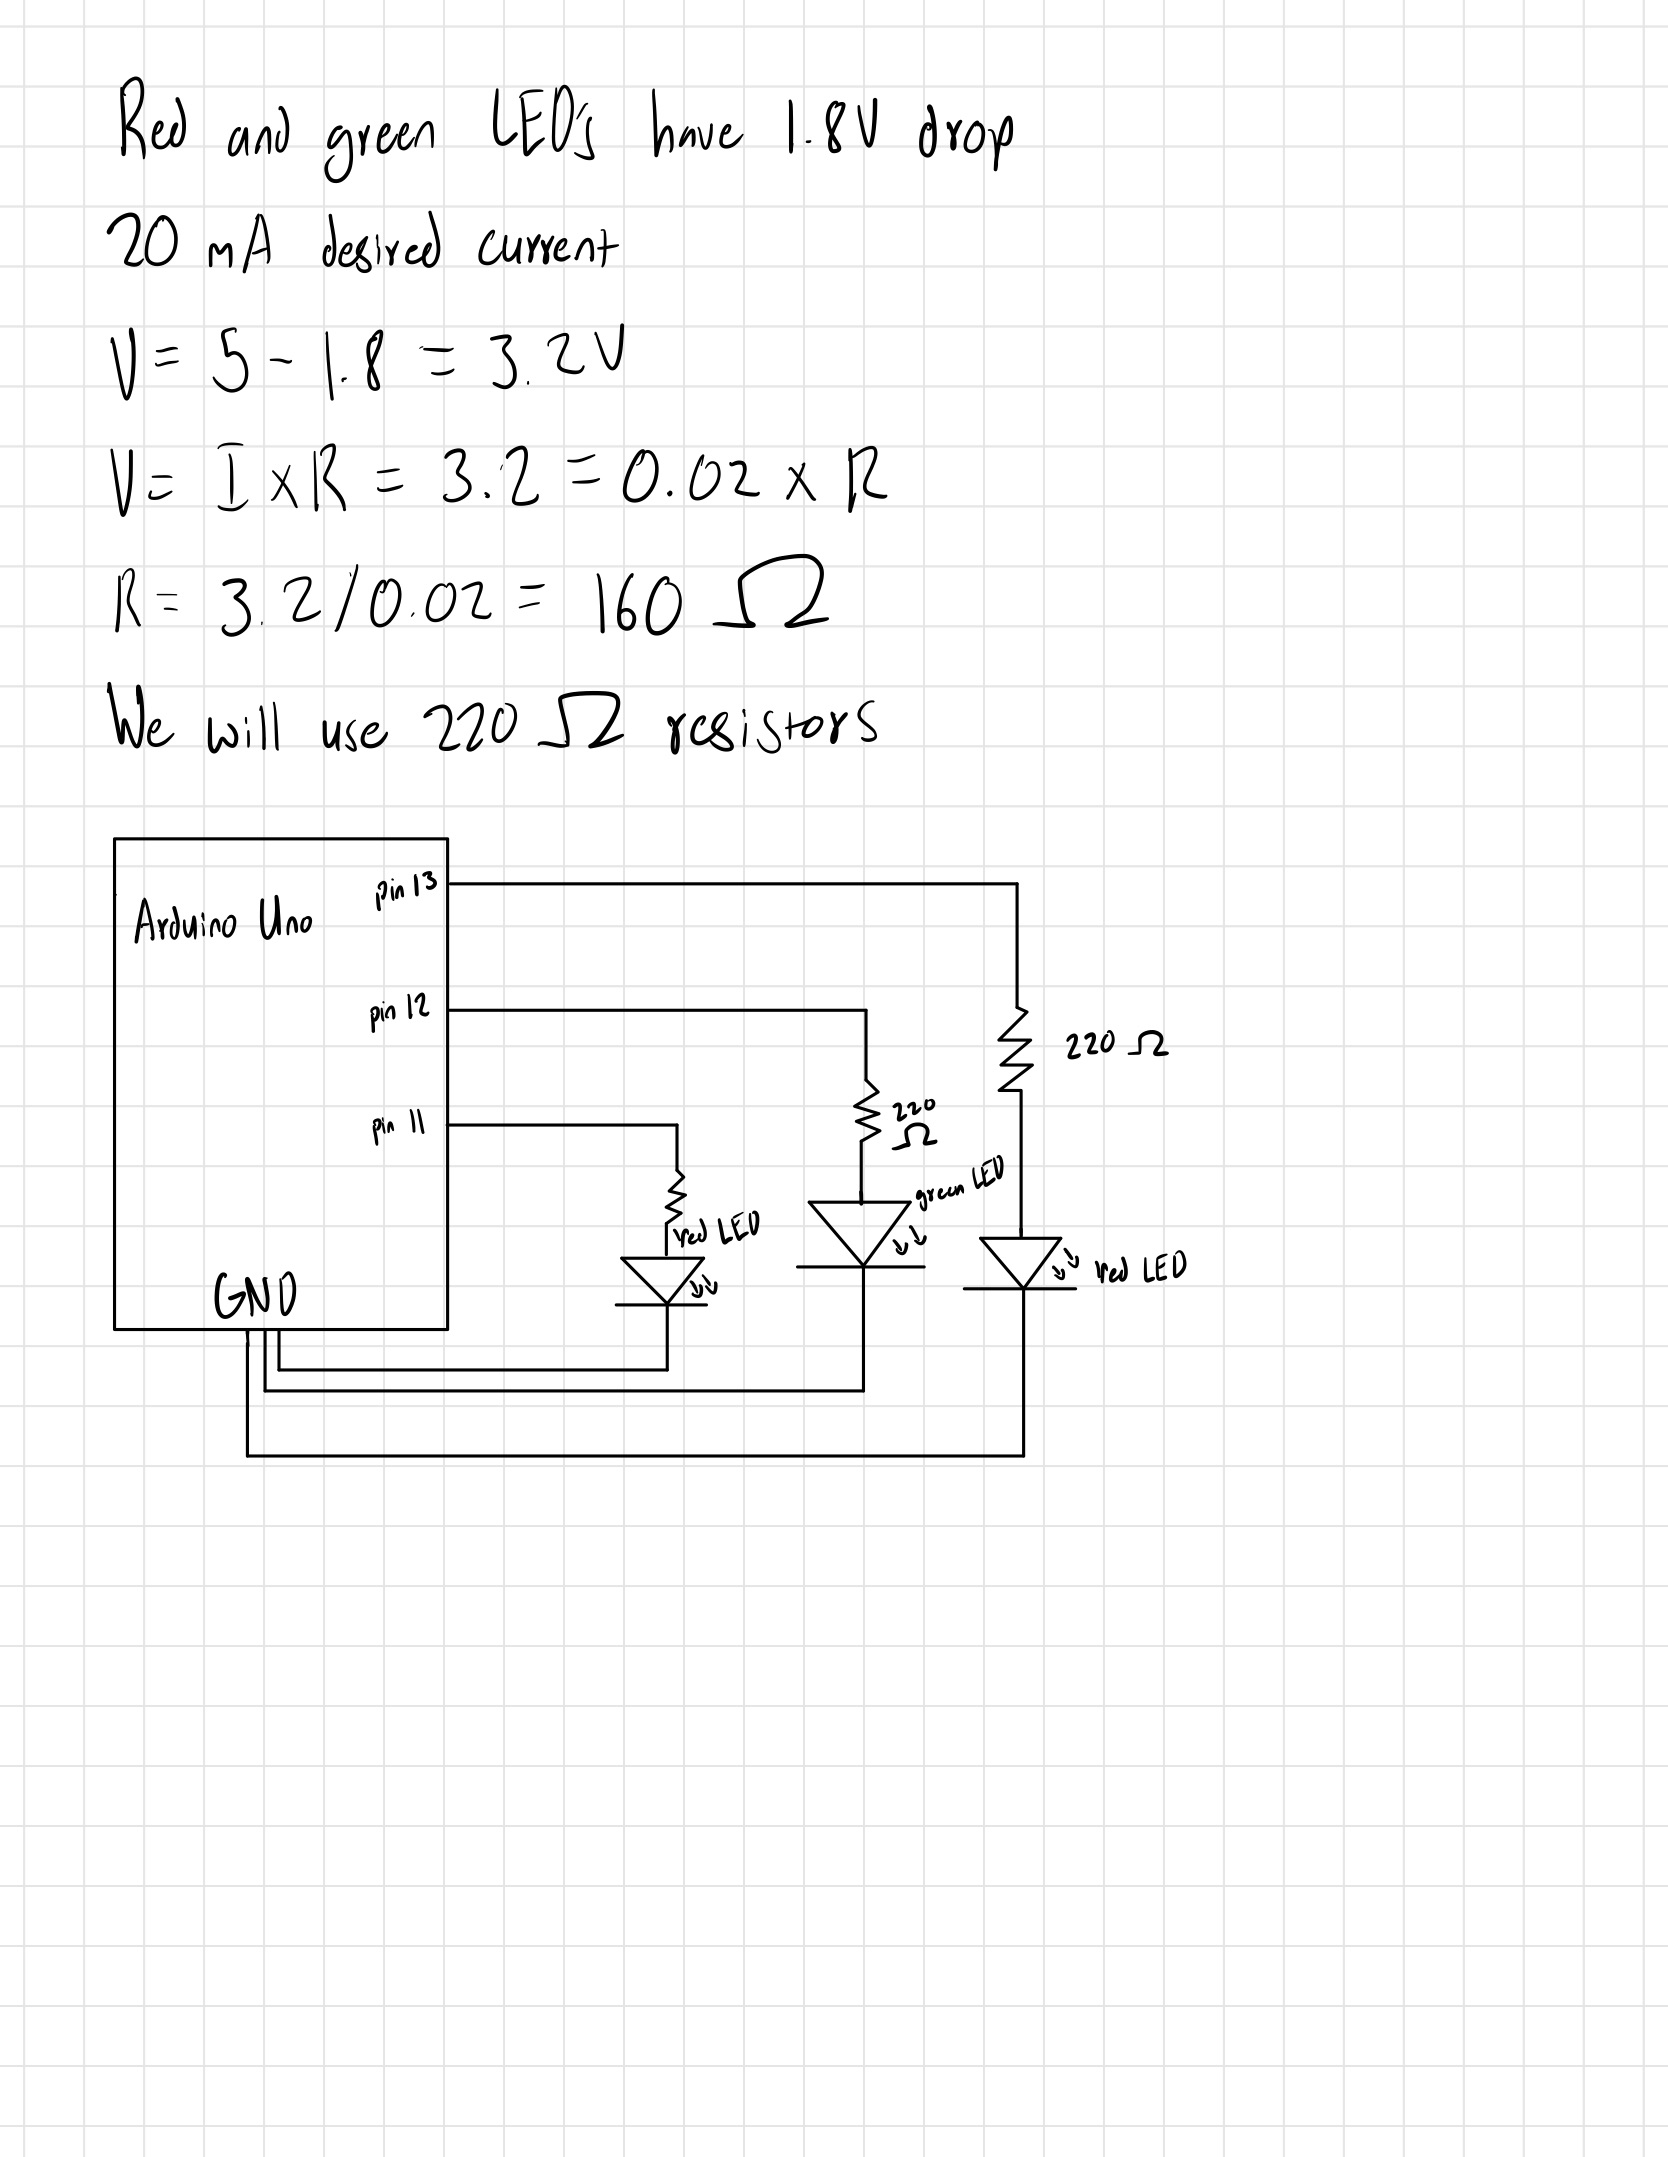 Red and green LEDs have 1.8V drop
20 mA desired current
V = 5 - 1.8 = 3.2V
V = I x R = 3.2 = 0.02 x R
R = 3.2/0.02 = 160 Ω
We will use 220 Ω resistors
pin 13
Arduino Uno
pin 12
220 Ω
220
Ω
pin 11
green LED
red LED
red LED
GND